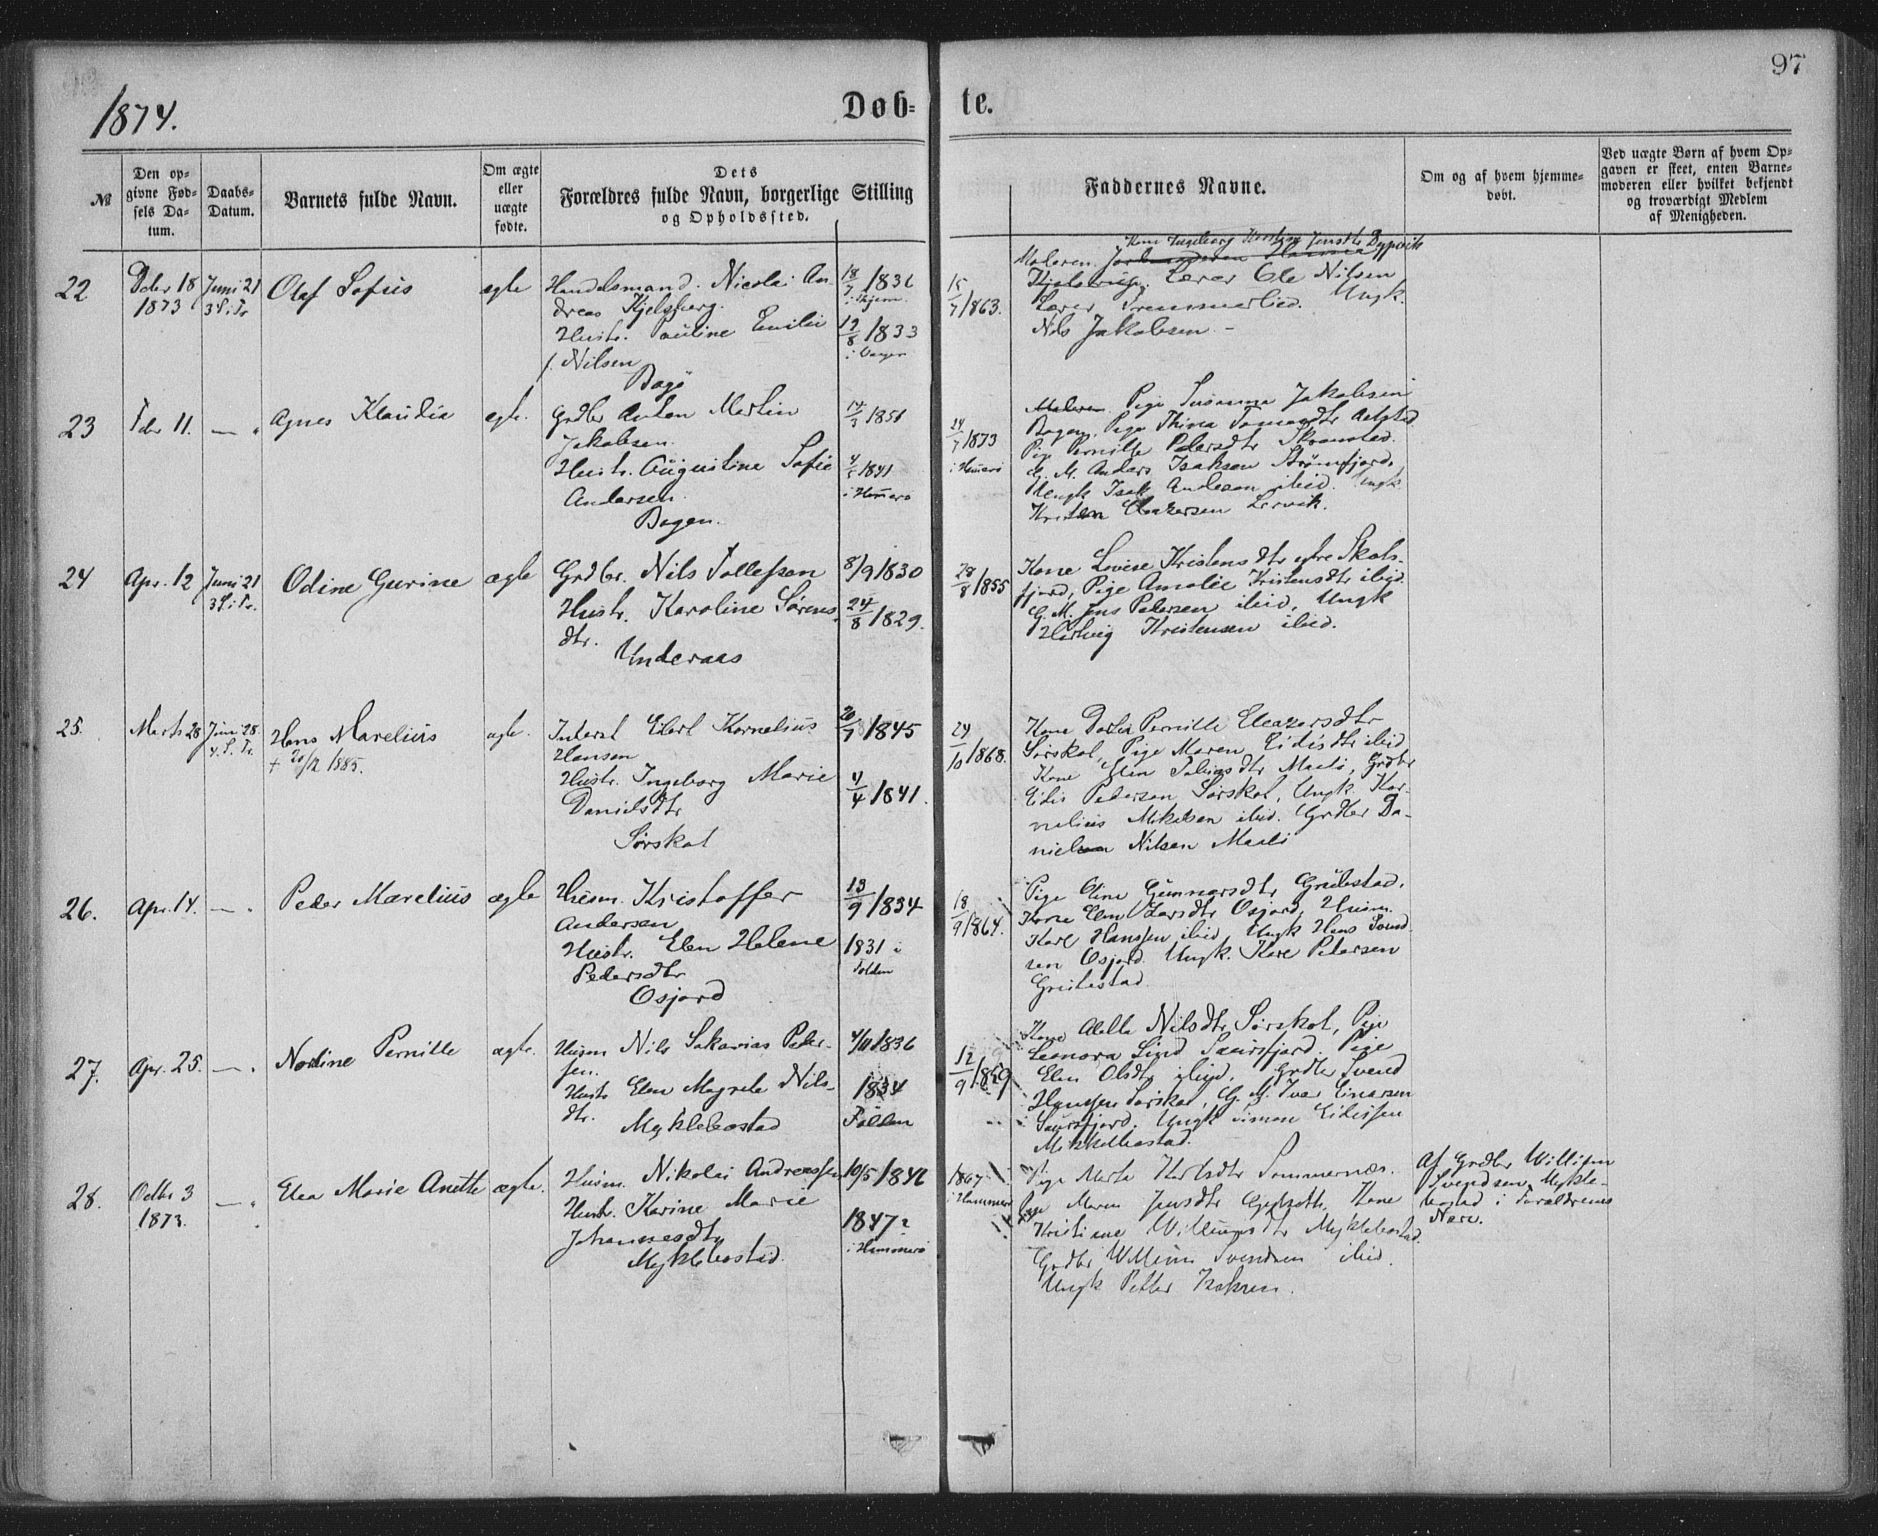 97
1874.
Døb=
te.
№
Den op-
givne Fød-
sels Da-
tum.
Daabs-
Datum.
Barnets fulde Navn.
Om ægte
eller
uægte
fødte.
Dets
Forældres fulde Navn, borgerlige Stilling
og Opholdssted.
Faddernes Navne.
Om og af hvem hjemme-
døbt.
Ved uægte Børn af hvem Op-
gaven er skeet, enten Barne-
moderen eller hvilket bekjendt
og troværdigt Medlem
af Menigheden.
22
Dcbr 18
1873
Juni 21
3 S. i Tr
Olaf Sofus
ægte
Handelsmand. Nicolai An
dreas Kjelsberg.
Hustr. Pauline Emilie
f. Nilsen
Bogø
18/7 1836
i Skjerv.
19/8 1833
15/7 1863.
Kone Ingeborg
Dypvik
Lærer Ole Nilsen
Ungk.
Nils Jakobsen -
23
Febr 11.
— "
Agnes Klaudia
egte.
Grdbr Anton Martin
Jakobsen.
Hustr. Augustine Sofie
Andersen.
Bogen.
14/3 1851
1841
i Hamerø
24/7 1873
i Hamerø
Pige Susanna Jakobsen
Bogen, Pige
Pige Pernille Pedersdtr
G. M. Anders Isaksen Strømfjord,
Ungk Isak Andersen ibid. Ungk
24
Apr. 12
Juni 21
3 S. i Tr.
Odine Gurine
ægte
Grdbr. Nils Tollefsen
Hustr. Karoline Sørens
dtr.
Underaas
8/9 1830
24/8 1829.
28/8 1855
Kone Lovise Kristensdtr ytre Skots-
fjord, Pige Amalie Kristensdtr ibid.
G. M. Jens Pedersen ibid, Ungk
Hertvig Kristensen ibid.
25.
Marts 28
Juni 28
4. S. Tr.
Hans Marelius
+ 20/12 1885.
ægte.
Inderst Eilert Kornelius
Hansen
Hustr. Ingeborg Marie
Danielsdtr
Sørskot
20/7 1845
4/4 1841.
24/10 1868.
Kone Dorthea Pernille Eleazersdtr
Sørskot, Pige Maren Eidisdtr ibid
Kone Elen Tobiasdtr Maalø, Grdbr
Eidis Pedersen Sørskot, Ungk. Kor-
nelius Mikalsen ibid. Grdbr Da-
niel Nilsen Maalø
26.
Apr. 14.
— "
Peder Marelius
ægte
Husm. Kristoffer
Andersen
Hustr. Elen Helene
Pedersdtr
Osjord
13/9 1834
1831 i
Folden
18/9 1864.
Pige Oline Gunnarsdtr Grubestad,
Kone Elen Larsdtr Osjord, Husm.
Karl Hanssen ibid, Ungk Hans Svend
sen Osjord. Ungk. Kare Petersen
Grubestad.
27.
Apr. 25.
— "
Nordine Pernille
ægte.
Husm Nils Sakarias Peder-
sen.
Hustr Elen Magrete Nils-
dtr.
Myklebostad
4/11 1836
1834
Folden
12/9 1859
Kone Nilsdtr Sørskot, Pige
Leonora Lind Saursfjord. Pige
Elen Olsdtr ibid, Grdbr Svend
Hanssen Sørskot, G. M. Ivar Einarsen
Saursfjord. Ungk Simon Eidissen
Mikkelbostad.
28.
Octbr 3
1873.
— "
Elea Marie Anette
ægte.
Husm. Nikolai Andreassen
Hustr. Karine Marie
Johannesdtr
Myklebostad.
10/5 1846
1847?
i Hammerø
1867
i Hammerø
Pige Marta Karlsdtr Sommernæs.
Pige Maren Jensdtr Kone
Kristiane Willumsdtr Myklebostad
Grdbr Willum Svendsen ibid.
Ungk Petter Isaksen.
Af Grdbr Willum
Svendsen Mykle-
bostad i Forældrenes
Nærv.